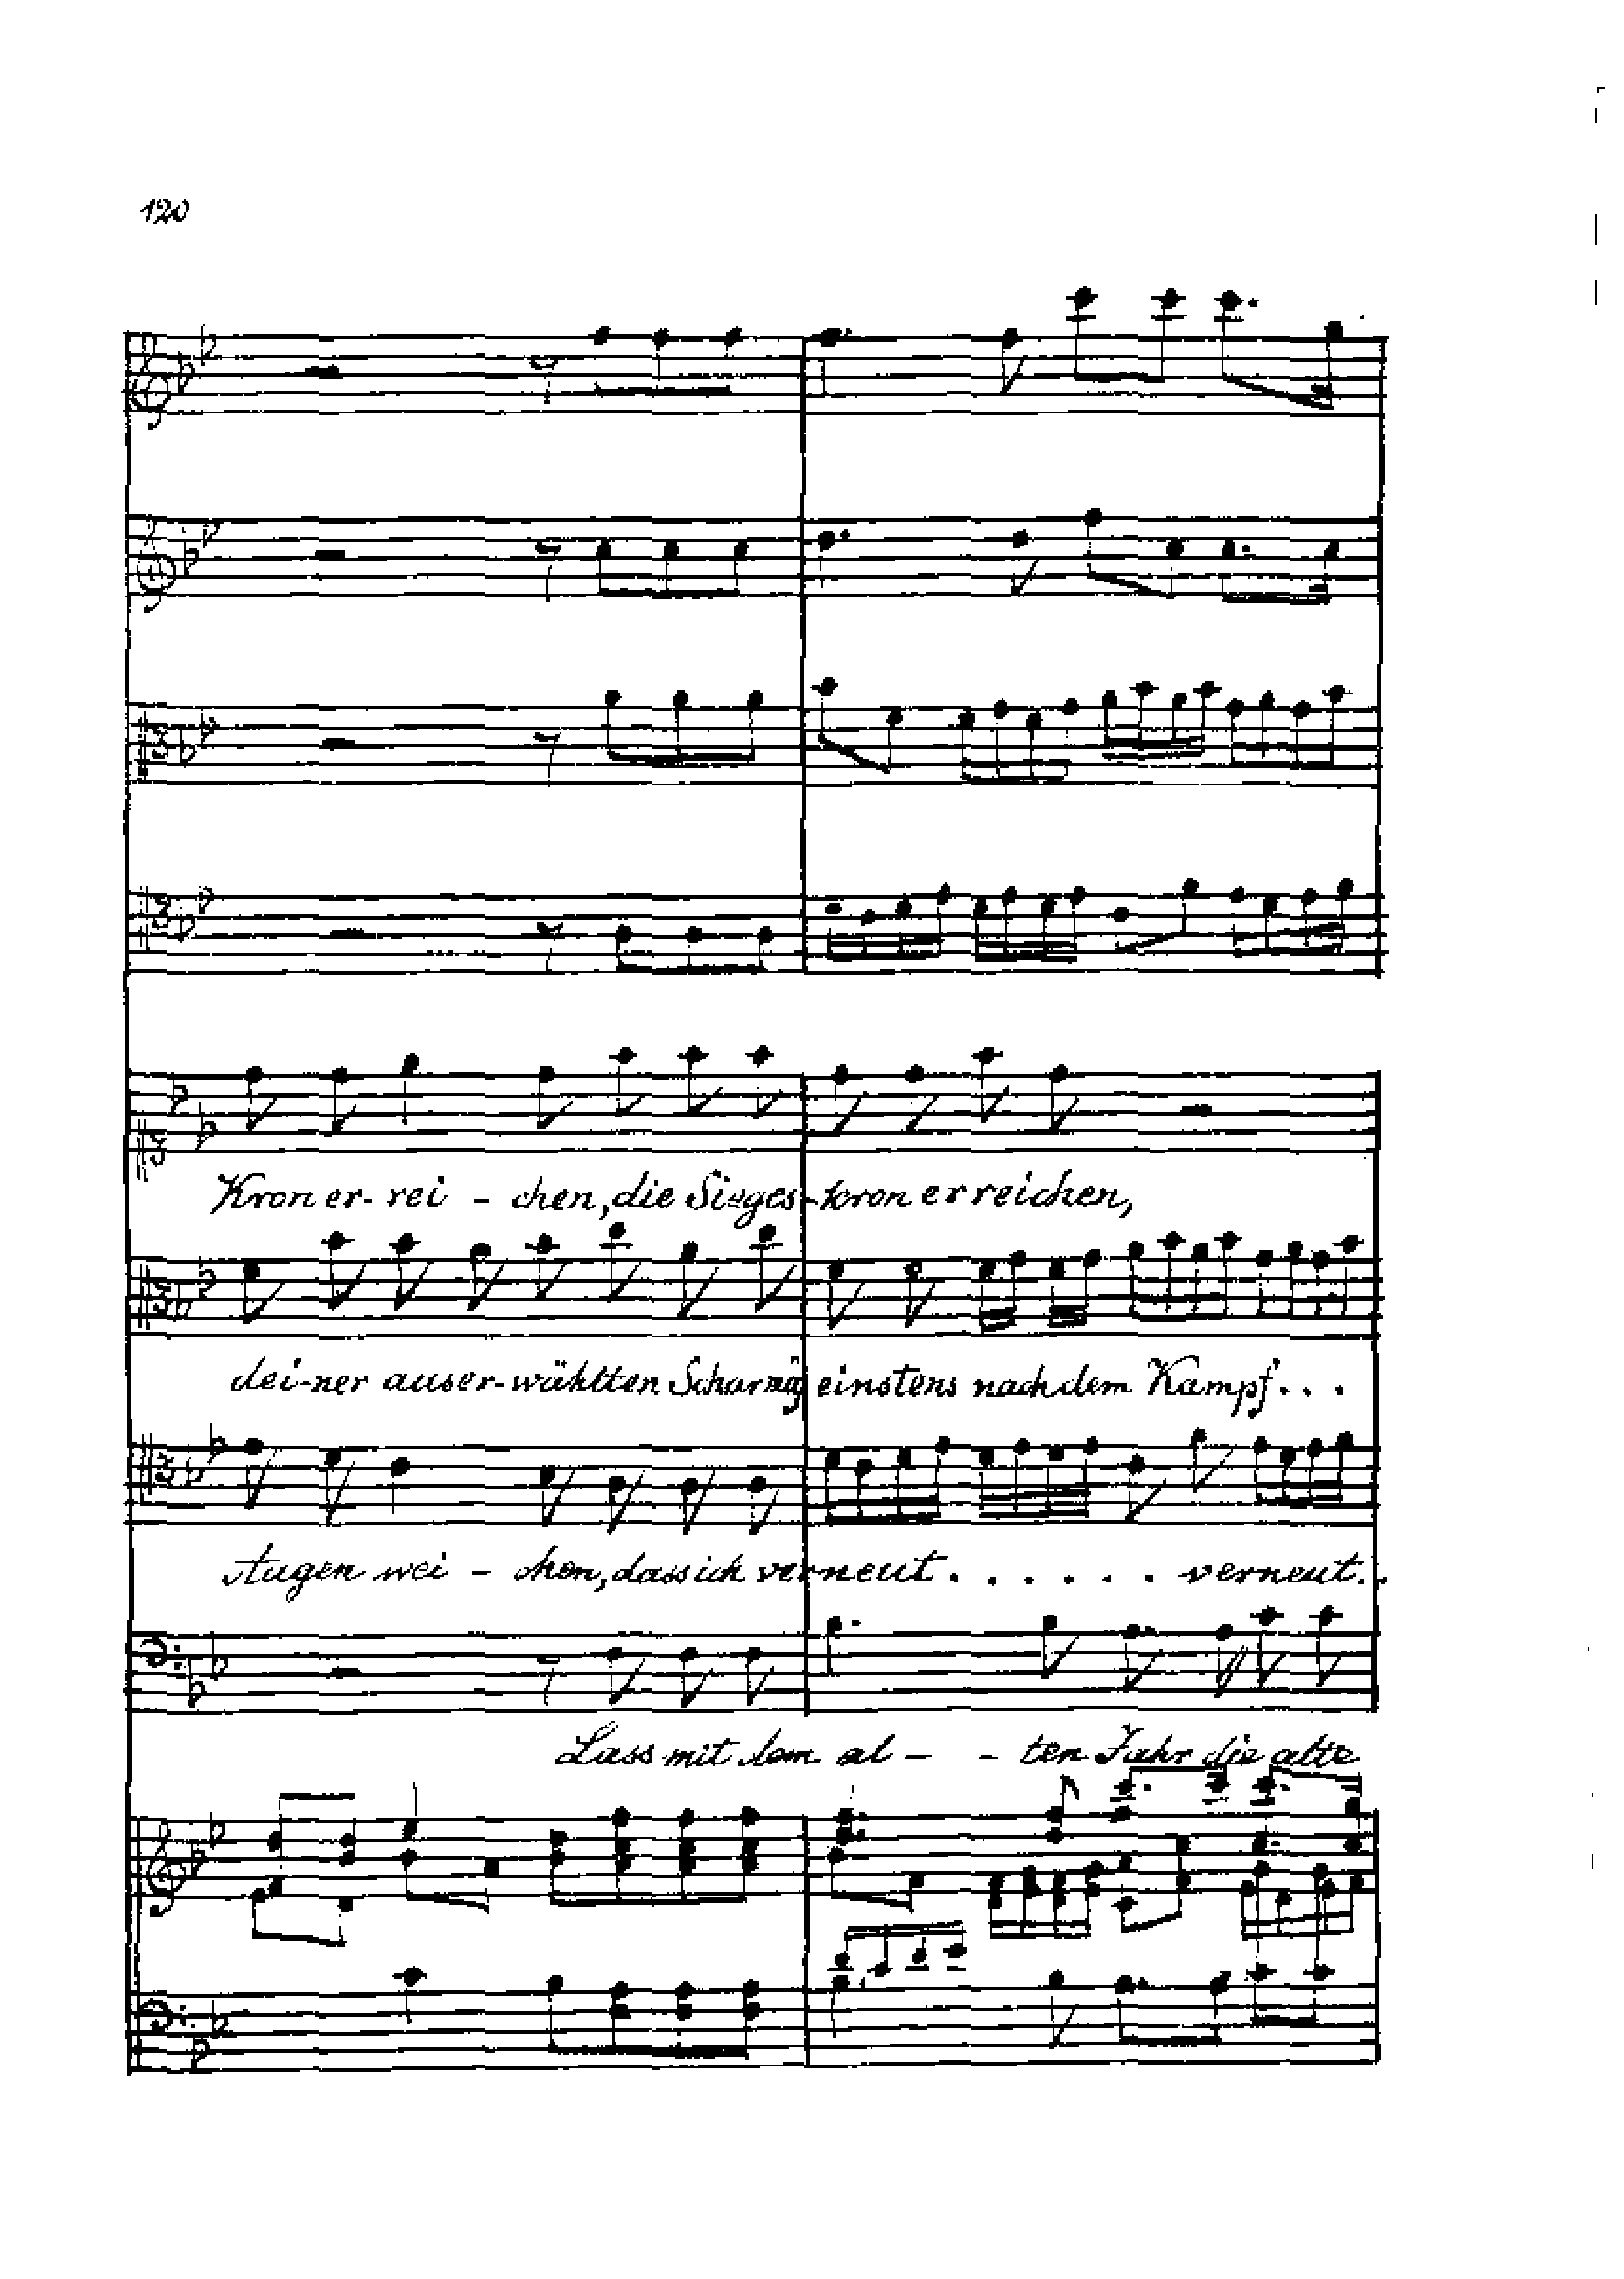 120
Kron er- rei - chen, die Sieges-kron erreichen,
dei-ner auser-wählten Schar mög einstens nach dem Kampf . . .
Augen wei - chen, dass ich verneut . . . . . . verneut . .
Lass mit dem al - - ten Jahr die alte